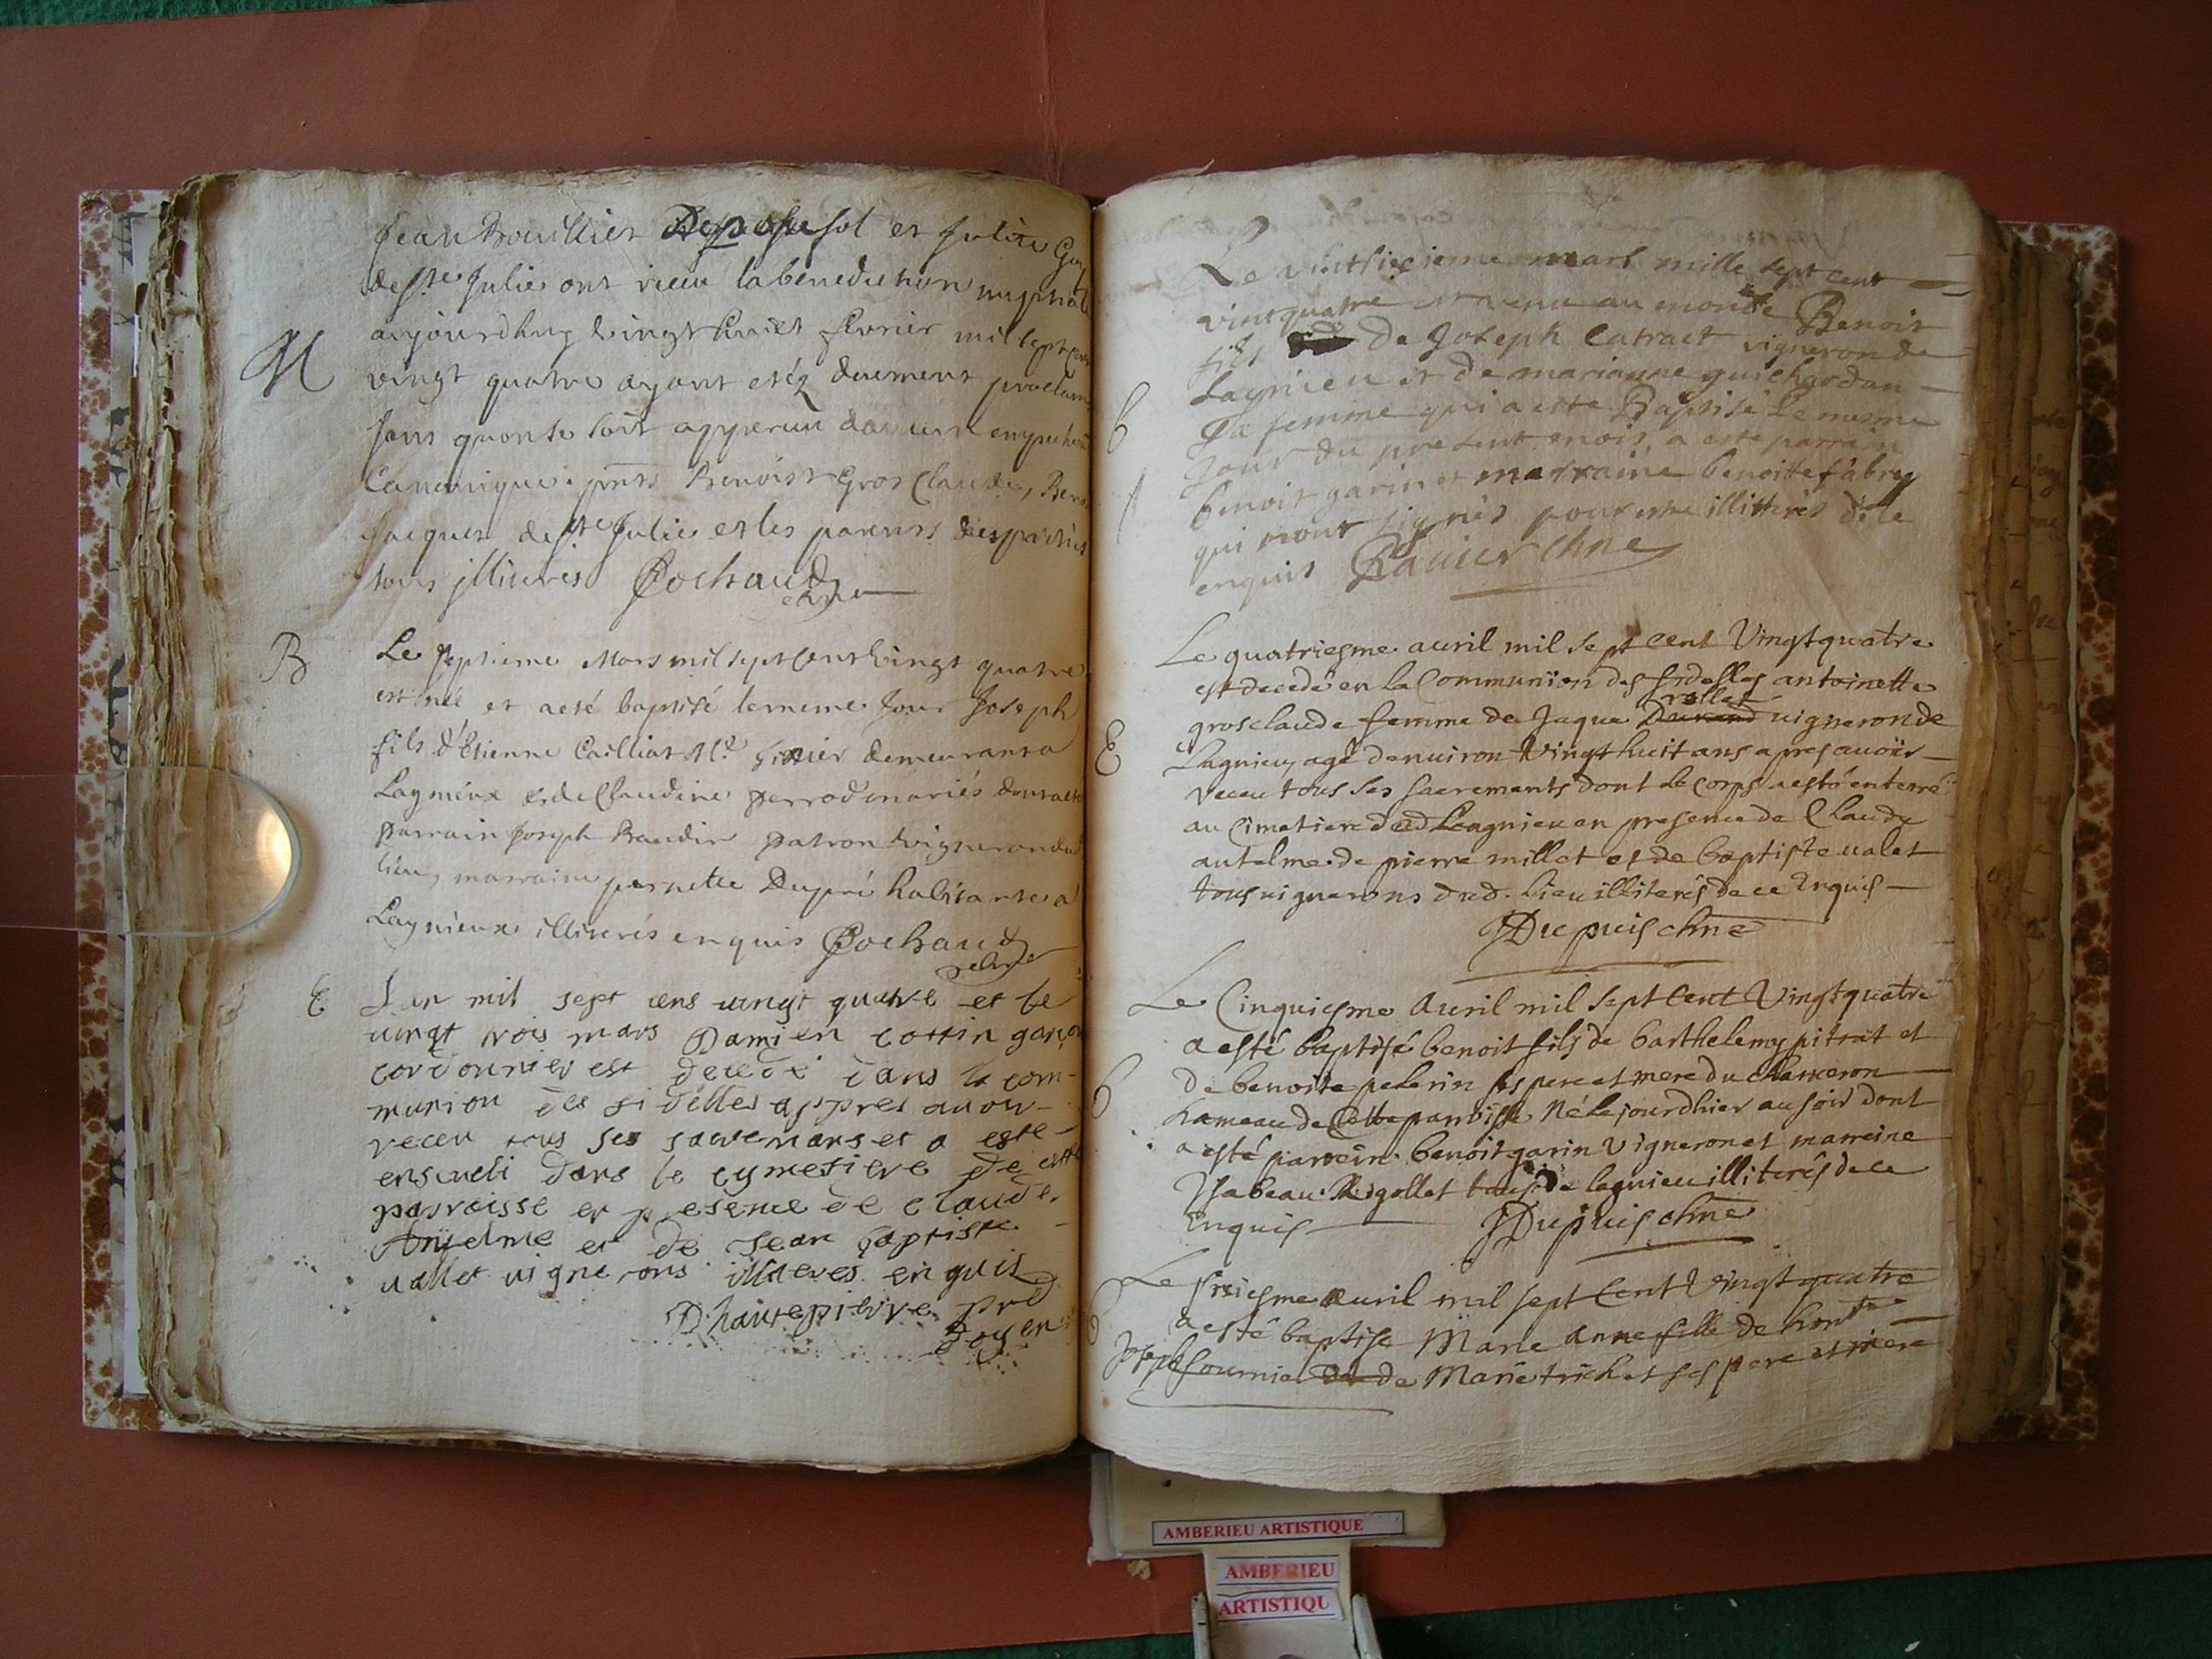 Jean Bouillier et Julie
de Ste Julie ont receu la benediction nuptial
aujourdhuy vingt huict fevrier mil sept
M
vingt quatre ayant estéz duement proclam
sans quon se soit apperceu daucun empechem
Canonique. pnts Benoist Gros Claude,
Jacques de Ste Julie et les parents des parties
tous illiterés Cochaud
chne
B
Le septieme Mars mil sept Cent vingt quatre
est née et a eté baptisé le meme Jour Joseph
fils d'Etienne Cailliat demeurant a
Lagnieux et de Claudine perrod mariés
parrain Joseph Baudin patron vigneron
lieu, marraine pernette Dupré habitante a
Lagnieux illiterés enquis Cochaud
chne
E
Lan mil sept cens vingt quatre et le
vingt trois mars Damien cottin garçon
cordonnier est decedé dans la com-
munion des fidelles appres avoir
receu tous ses sacremans et a esté
enseveli dans le cymetiere de cette
parroisse en presence de claude
Antelme et de Jean baptiste
vallet vignerons illiteres enquis
D hautepierre prd
doyen
Le vintsixieme mars mille sept cent
vintquatre est venu au monde Benoit
fils de Joseph Catract vigneron de
Lagnieu et de marianne guichardan
b
Sa femme qui a esté Baptisé Le mesme
Jour du present mois, a esté parrain
benoit garin et marraine benoitte fabry
qui n'ont signés pour estre illitterés de ce
enquis Ravier chne
Le quatriesme avril mil sept cent Vingtquatre
est decedé en la Communion des fidelles antoinette
rollet
grosclaude femme de Jaque Durand vigneron de
E
Lagnieu, agé denviron Vingt huit ans apres avoir
receu tous ses sacrements dont le corps a esté enterré
au Cimetiere dud Lagnieu en presence de Claude
antelme de pierre millet et de baptiste valet
tous vignerons dud. lieu illiterés de ce Enquis
JDupuis chne
Le Cinquiesme Avril mil sept Cent Vingtquatre
a esté baptisé benoit fils de barthelemy pitrat et
de benoite pelerin ses pere et mere du chameron
b
hameau de Cette parroisse Né le jourdhier au soir dont
a esté parrein benoit garin Vigneron et marreine
Ysabeau Rigollet tous de lagnieu illiterés de ce
Enquis JDupuis chne
Le sixiesme avril mil sept Cent Vingt quatre
b
a esté baptisé Marie Anne fille de honte
Joseph fournier de Marie trichet ses pere et mere
AMBERIEU ARTISTIQUE
AMBERIEU
ARTISTIQU